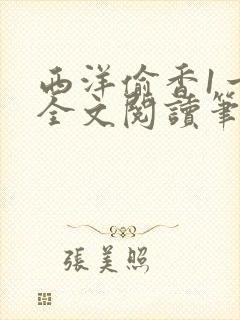 西洋偷香1一
全文閱讀筆
張美照